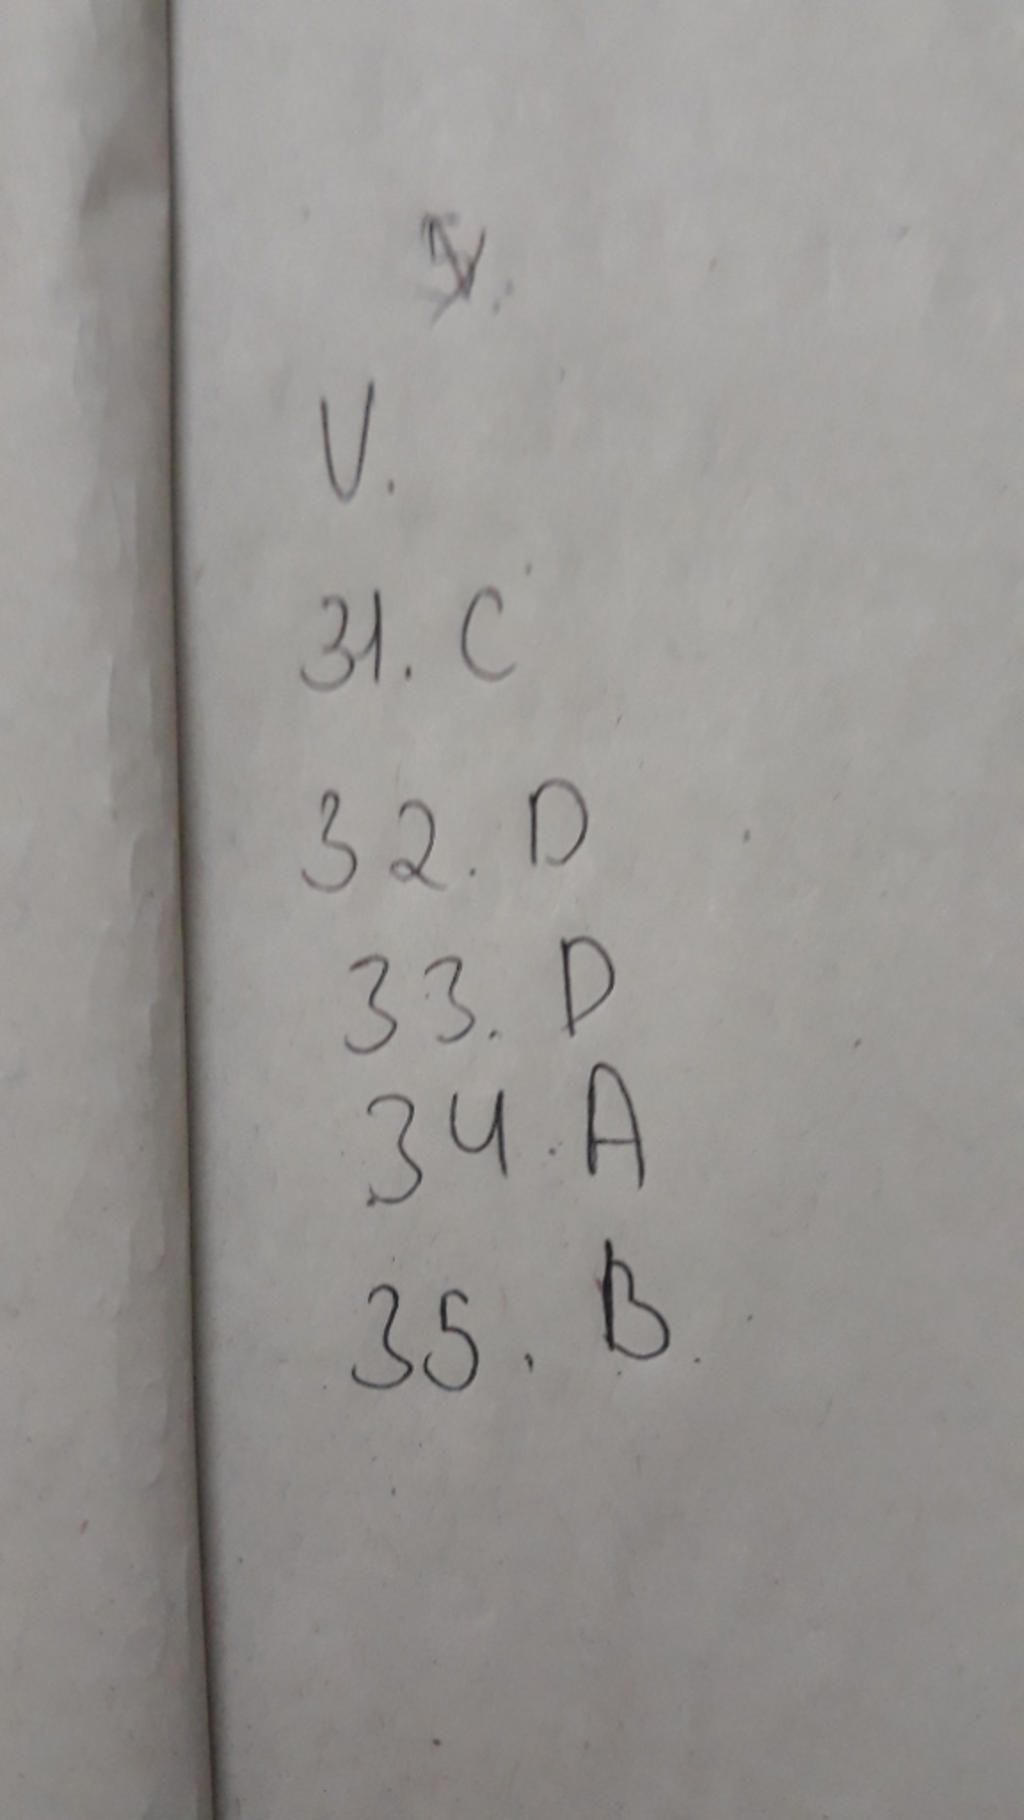 V.
31. C
32. D
33. D
34. A
35. B